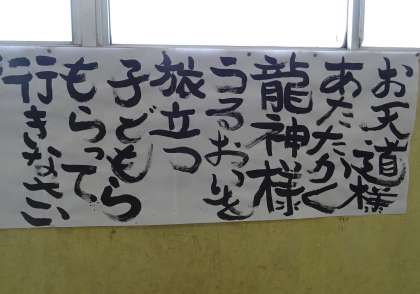 お天道様
あたたかく
龍神様
うるおいを
旅立つ
子どもら
もらって
行きなさい